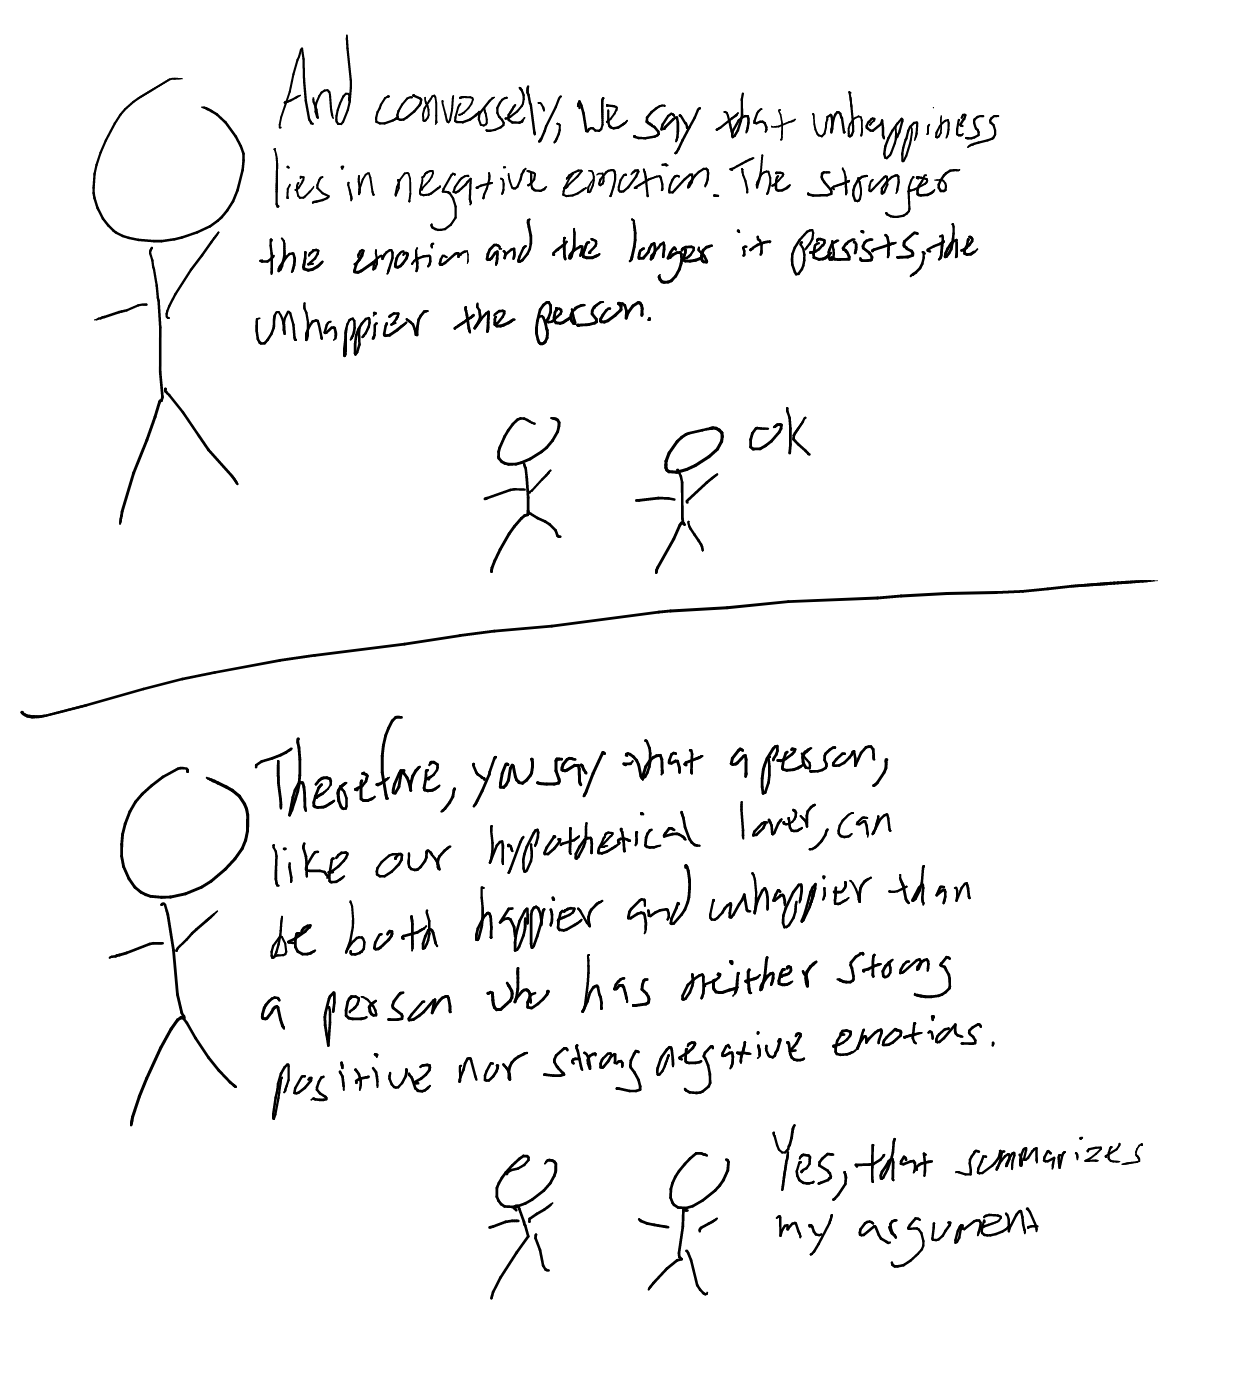 And conversely, we say that unhappiness
lies in negative emotion. The stronger
the emotion and the longer it persists, the
unhappier the person.
ok
Therefore, you say that a person,
like our hypothetical lover, can
be both happier and unhappier than
a person who has neither strong
positive nor strong negative emotions.
Yes, that summarizes
my argument